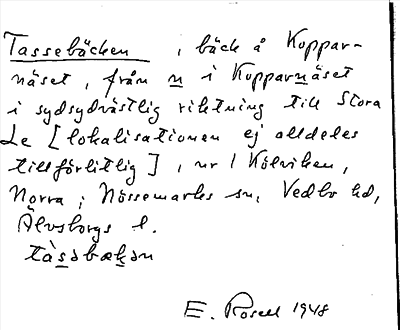 Tassebäcken, bäck å Koppar-
näset, från n i Kopparnäset
i sydsydvästlig riktning till Stora
Le [lokalisationen ej alldeles
tillförlitlig], nr 1 Kölviken,
Norra, i Nössemarks sn, Vedbo hd,
Älvsborgs l.
tàsəbækən
E. Rosell 1948